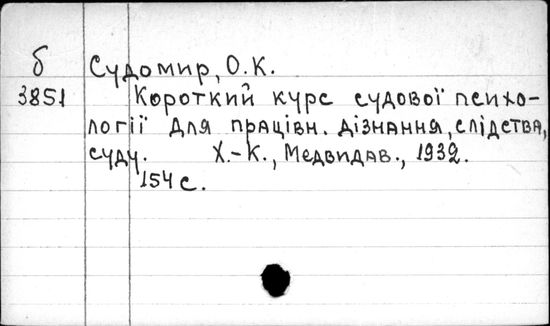 б Судомир, О.К.
3851 Короткий курс судової психо-
логії для працівн. дізнання, слідства,
суду. Х.-К., Медвидав., 1932.
154 с.